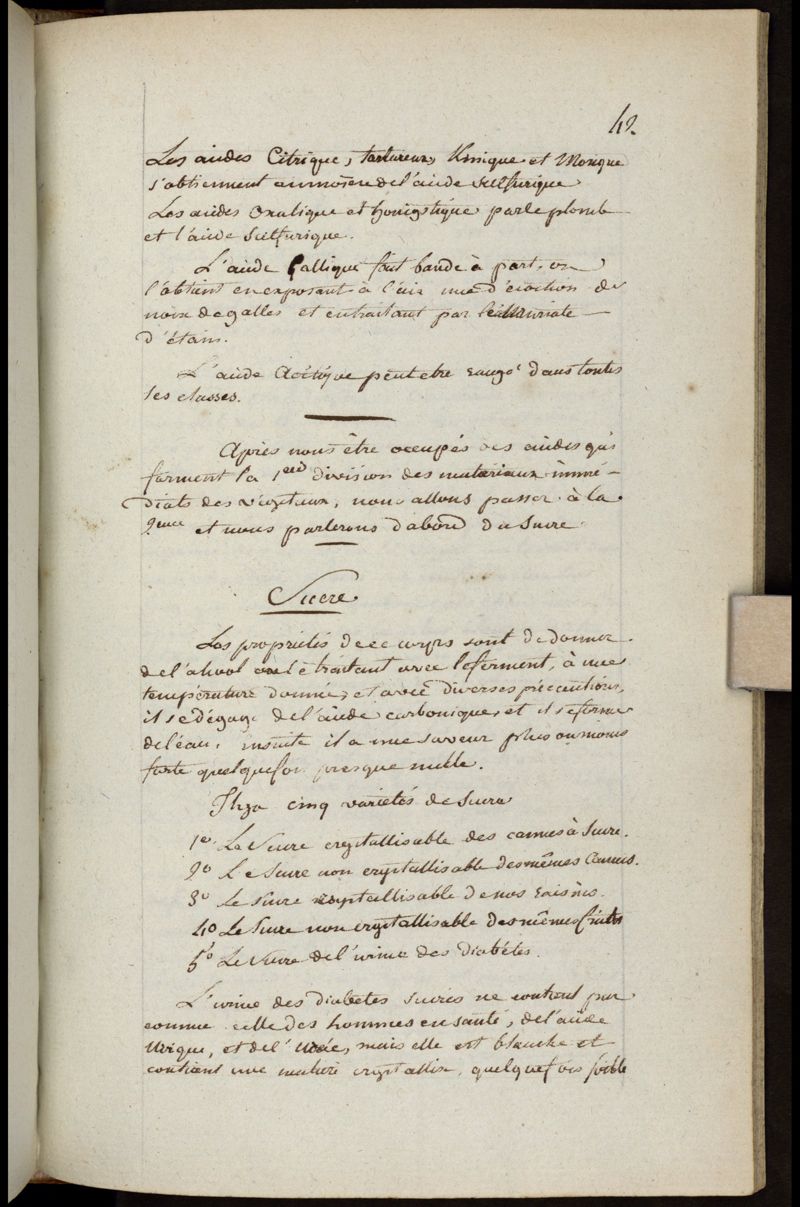 42.
Les acides Citrique, tartareux, Kinique et Morique
s'obtiennent au moien de l'acide Sulfurique
Les acides Oxalique et honigstique par le plomb
et l'acide Sulfurique.
L'acide Gallique fait bande à part, on
l'obtient en exposant à l'air une décoction de
noix de galles et en traitant par le Muriate
d'étain.
L'acide Acétique peut etre rangé dans toutes
les classes.
Après nous être occupés des acides qui
forment la 1ere division des materiaux immé-
diats des végétaux, nous allons passer à la
2eme et nous parlerons d'abord du Sucre
Sucre
Les propriétés de ce corps sont de donner
de l'alcool en le traitant avec le ferment, à une
température donnée, et avec diverses précautions,
il se dégage de l'acide carbonique, et il se forme
de l'eau, ensuite il a une saveur plus ou moins
forte quelquefois presque nulle.
Il y a cinq variétés de Sucre
1o Le Sucre crystallisable des cannes à Sucre.
2o Le Sucre non crystallisable des mêmes Cannes.
3o Le Sucre crystallisable de nos raisins.
4o Le Sucre non crystallisable des mêmes fruits
5o Le Sucre de l'urine des diabétes.
L'urine des diabetes sucrés ne contient pas
comme celle des hommes en santé, de l'acide
Urique, et de l'Urée, mais elle est blanche et
contient une matière crystallise, quelquefois faible